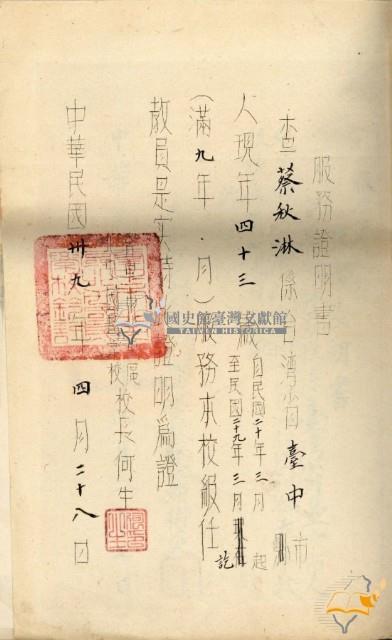 服務證明書
查蔡秋淋係台灣省臺中市
人現年四十三歲自民國二十年三月起
至民國二十九年三月訖
(滿九年 月)服務本校級任
教員是實特此證明為證
校長何生
中華民國卅九年四月二十八日
國史館臺灣文獻館
TAIWAN HISTORICA